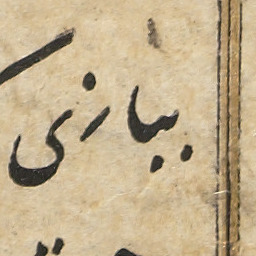 ببازی